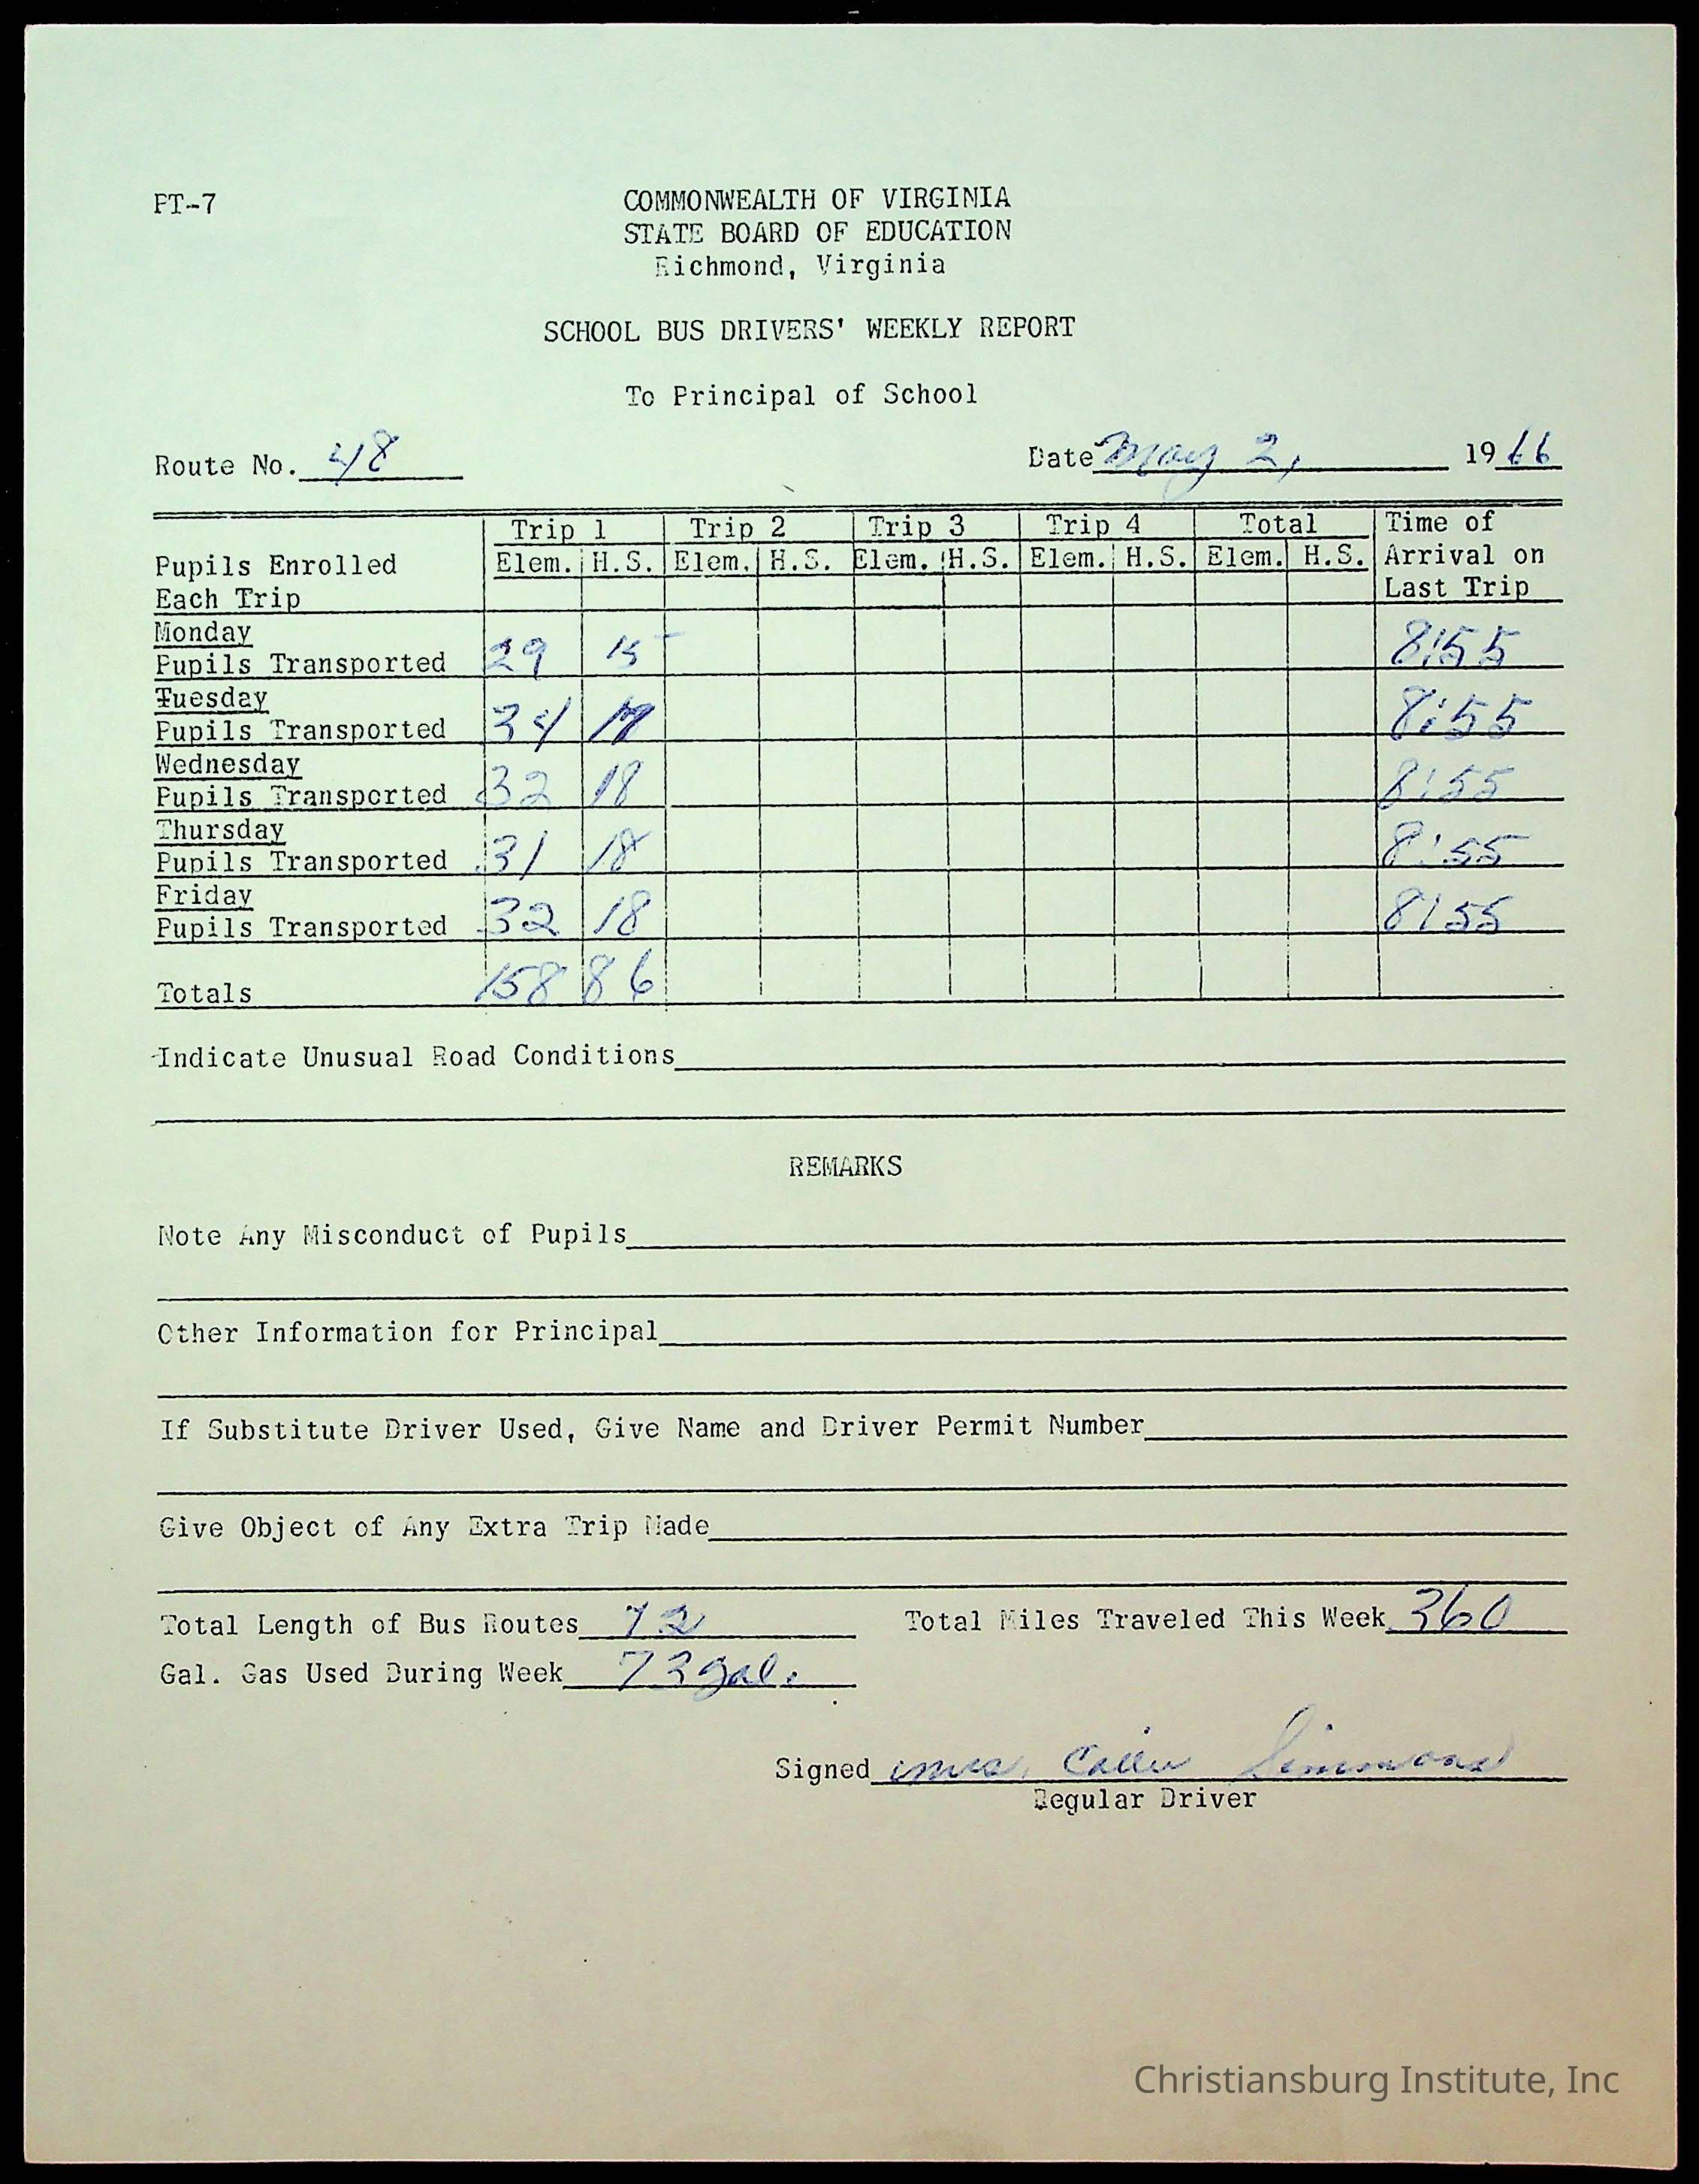 PT-7
COMMONWEALTH OF VIRGINIA
STATE BOARD OF EDUCATION
Richmond, Virginia
SCHOOL BUS DRIVERS' WEEKLY REPORT
To Principal of School
Route No. 48 Date May 2, 1966
Trip 1 Trip 2 Trip 3 Trip 4 Total Time of
Pupils Enrolled Elem. H.S. Elem. H.S. Elem. H.S. Elem. H.S. Elem. H.S. Arrival on
Each Trip Last Trip
Monday
Pupils Transported 29 15 8:55
Tuesday
Pupils Transported 34 17 8:55
Wednesday
Pupils Transported 32 18 8:55
Thursday
Pupils Transported 31 18 8:55
Friday
Pupils Transported 32 18 8:55
Totals 158 86
Indicate Unusual Road Conditions
REMARKS
Note Any Misconduct of Pupils
Other Information for Principal
If Substitute Driver Used, Give Name and Driver Permit Number
Give Object of Any Extra Trip Made
Total Length of Bus Routes 72 Total Miles Traveled This Week 360
Gal. Gas Used During Week 73 gal.
Signed Mrs. Simmons
Regular Driver
Christiansburg Institute, Inc